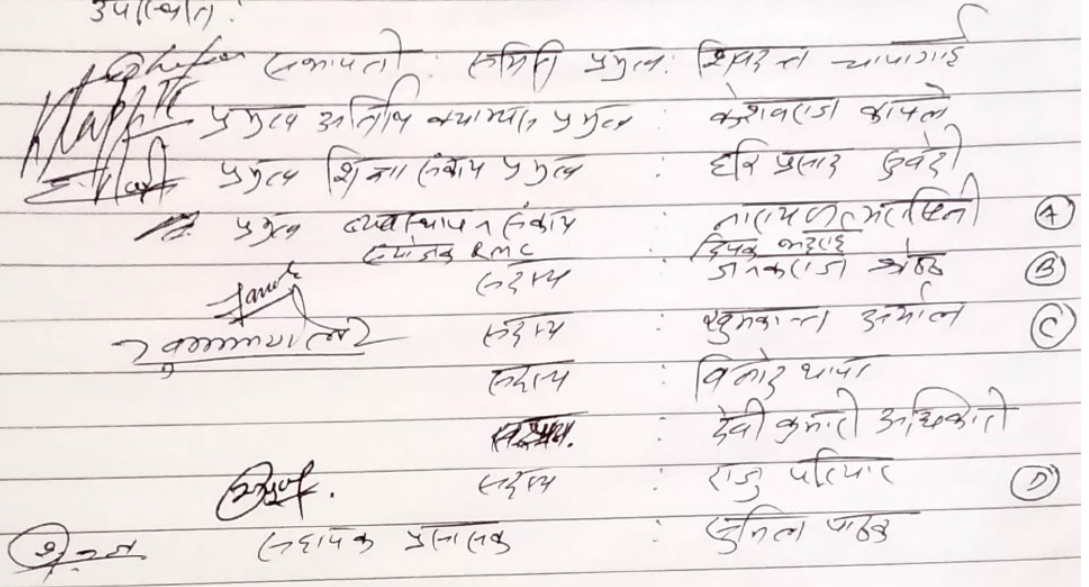 उपस्थिति:
सभापती : समिति प्रमुख : शिवदत्त चापागाई
प्रमुख अतिथि क्याम्पस प्रमुख : केशवराज काफ्ले
प्रमुख शिक्षा संकाय प्रमुख : हरि प्रसाद सुवेदी
प्रमुख व्यवस्थापन संकाय : नारायणदत्त मरासिनी (A)
संयोजक RMC दिपक भट्टराई
सदस्य : जनकराज श्रेष्ठ (B)
सदस्य : खुमकान्त अर्याल (C)
सदस्य : विनोद थापा
: देवी कुमारी अधिकारी
सदस्य : राजु परियार (D)
सहायक प्रसासक : सुनिल पाठक